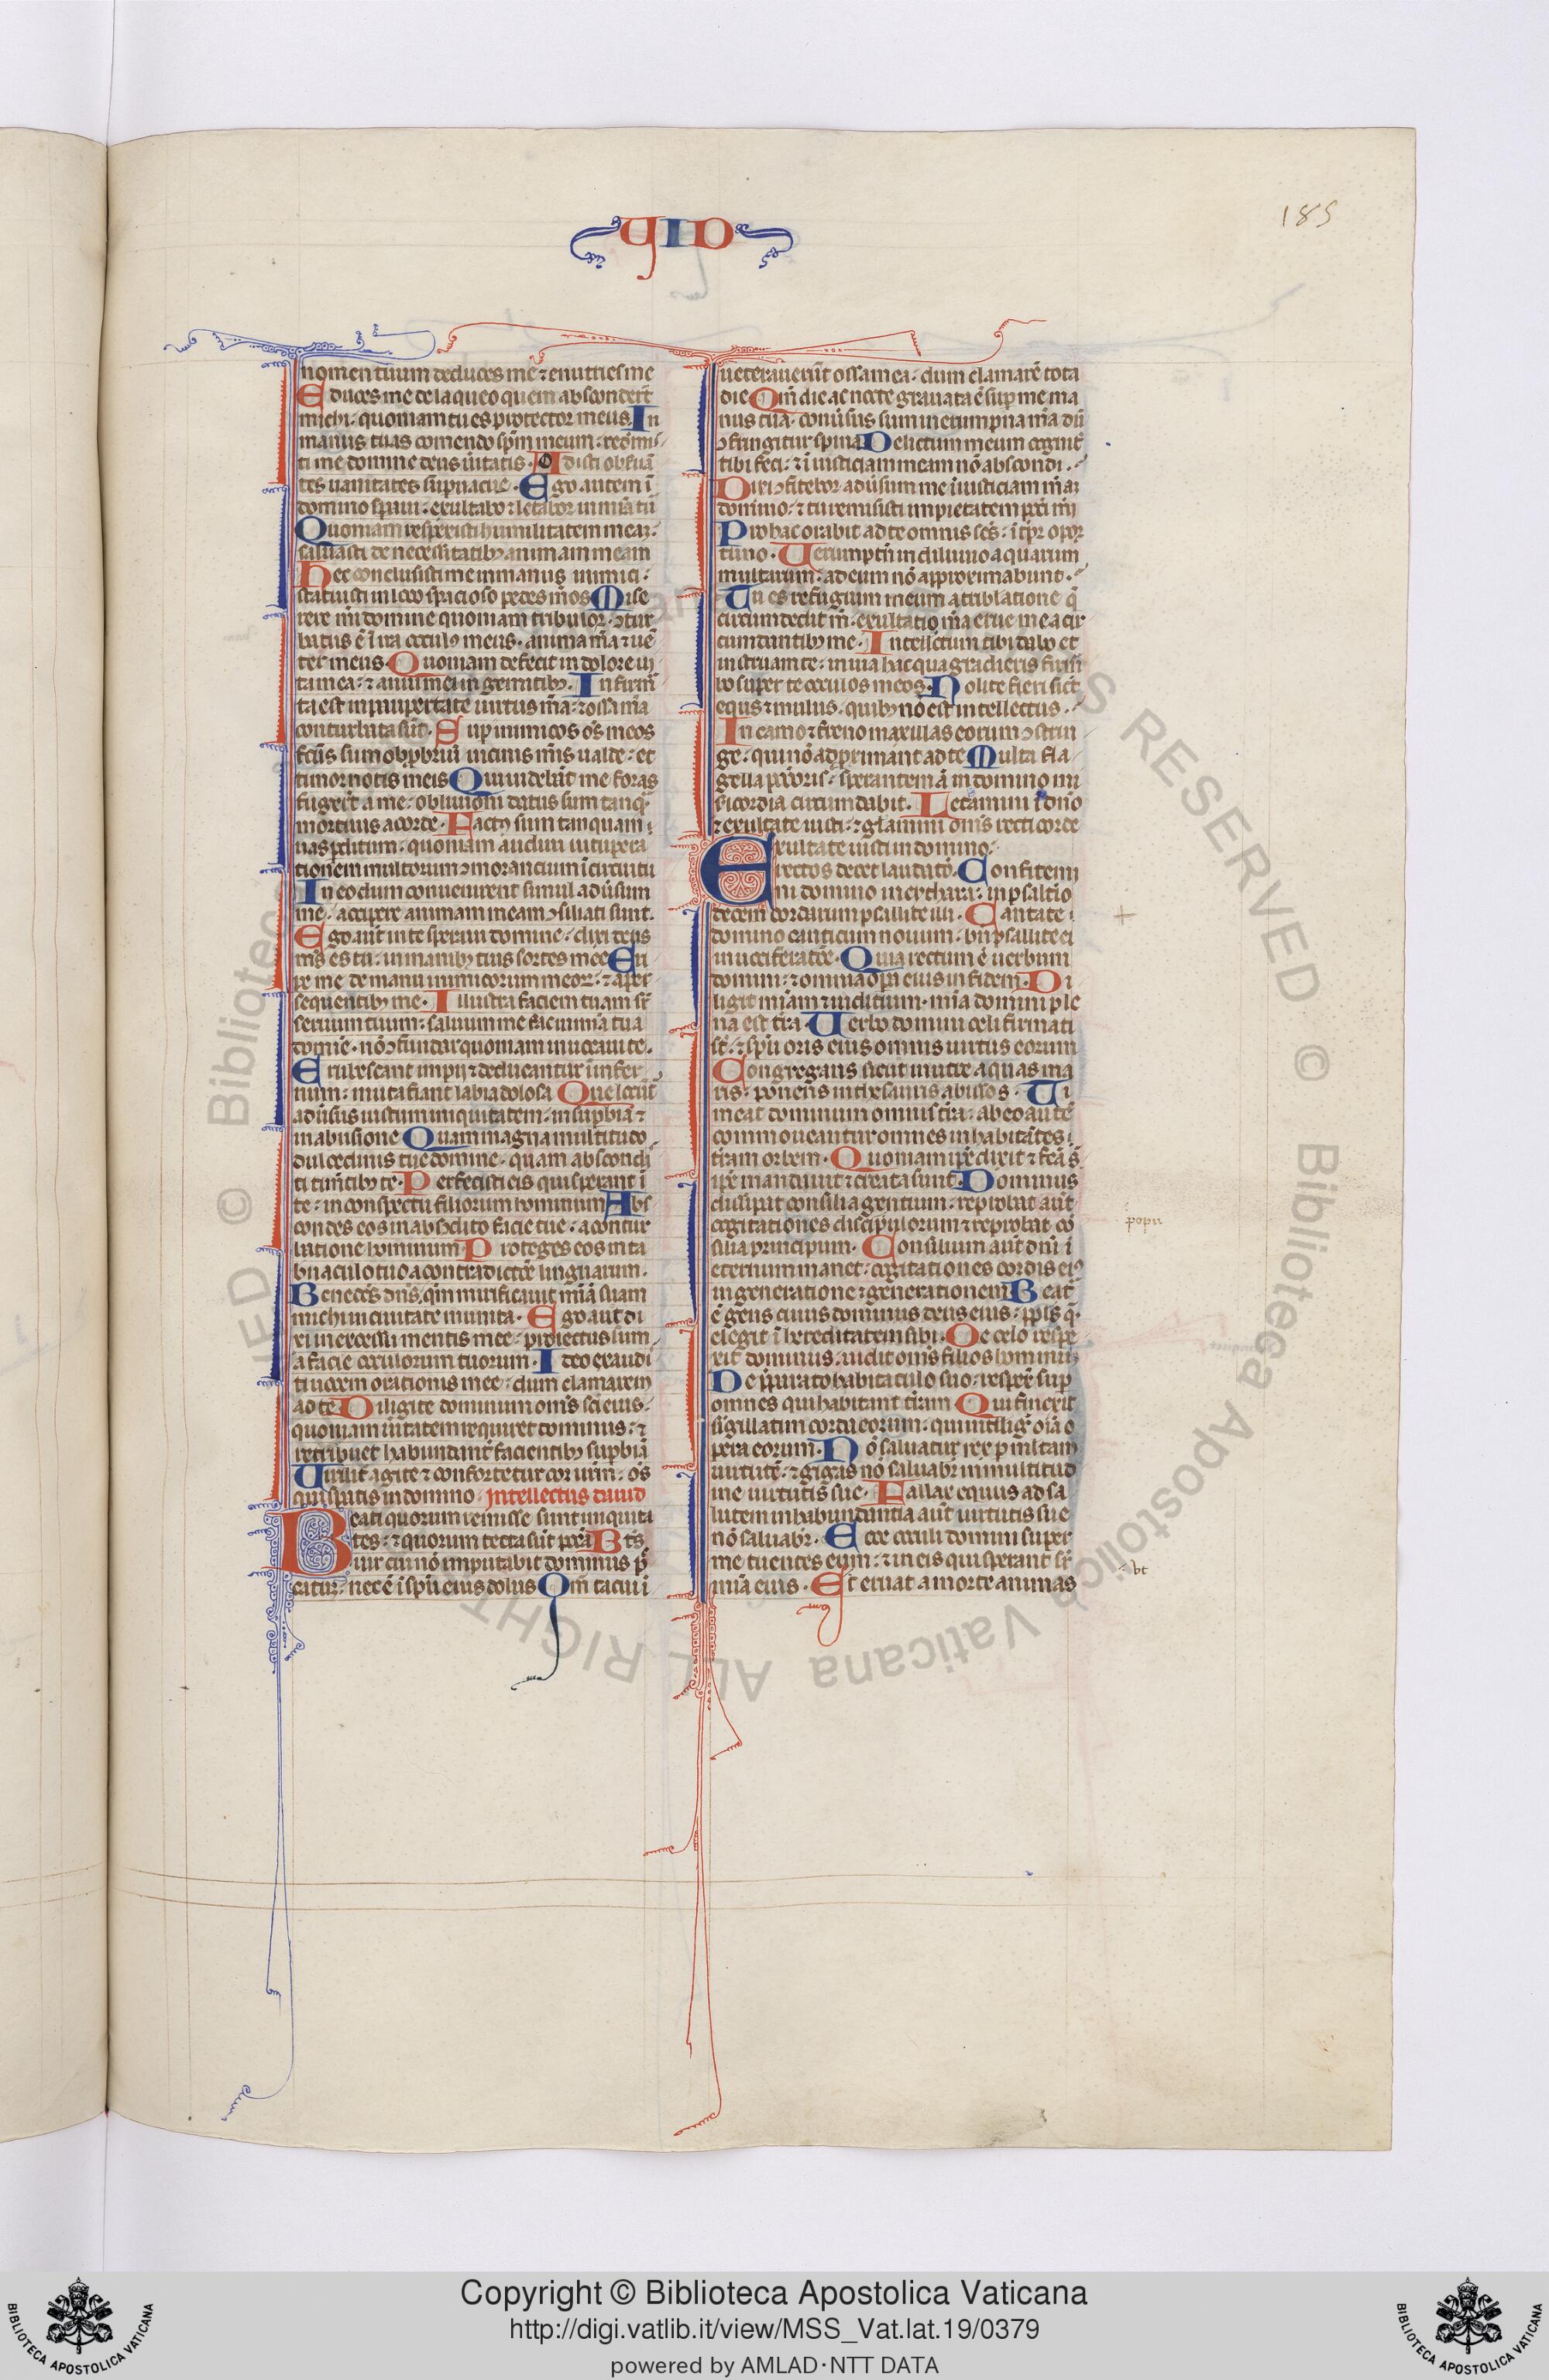 VID
185
nomen tuum deduces me ⁊ enutries me
Educes me de laqueo quem absconderūt
michi· quoniam tu es protector meus In
manus tuas comendo spm̄ meum· redemis
ti me domine deus ūitatis· Odisti obſuā
tes uanitates supuacue· Ego autem ī
domino spaui· exultabo ⁊ letabor in mīa tū
Quoniam respexisti humilitatem meaꝫ·
saluasti de necessitatibꝫ animam meam
Nec conclusisti me in manus inimici·
statuisti in loco spacioso pedes m̄os Mise
rere mī domine quoniam tribulor· ↄtur
batus ē ī ira oculꝰ meus· anima m̄a ⁊ uē
ter meus· Quoniam defecit in dolore ui
ta mea· ⁊ anni mei in gemitibꝫ· Infirm̄
ta est in paupertate uirtus m̄a· ⁊ ossa m̄a
conturbata sūt· Sup inimicos os̄ meos
fc̄us sum obprbriū uicinis m̄is ualde· et
timor notis meis Qui uidebāt me foras
fugerūt a me· obliuioni datus sum tanq̄·
mortuus a corde· Factꝰ sum tanquam
uas pditum· quoniam audiui uitupera
tionem multorum ↄmorancium ī circuitu
In eo dum conuenirent simul adūsum
me· accipere animam meam ↄsiliati sunt·
Ego aūt in te speraui domine· dixi deus
m̄s es tu· in manibꝫ tuis sortes mee Eri
pe me de manu inimicorum meoꝝ· ⁊ a per
sequentibꝫ me· Illustra faciem tuam sr̄
seruum tuum· saluum me fac in mīa tua
domīe· nō ↄfundar quoniam inuocaui te·
Erubescant impij ⁊ deducantur in fer
num· muta fiant labia dolosa Que locūt̄
adūsus iustum iniquitatem· in supbia ⁊
in abusione Quam magna multitudo
dulcedinis tue domine· quam abscondi
ti tim̄tibꝫ te· Perfecisti eis qui sperant ī
te· in conspectu filiorum hominum Abs
condes eos in abscōdito facie tue· a contur
batione hominum Proteges eos in ta
bnaculo tuo a contradictōe linguarum·
Benedc̄s dn̄s· qm̄ mirificauit mīa suam
michi in ciuitate munita· Ego aūt di
xi in excessu mentis mee· proiectus sum
a facie oculorum tuorum· Ideo exaudi
ti uocem orationis mee· dum clamarem
ad te Diligite dominum om̄s sc̄i eius·
quoniam ūitatem requiret dominus· ⁊
retribuet habundant̄ facientibꝫ supbiā
Uirilit̄ agite ⁊ confortetur cor ur̄m· om̄s
qui spatis in domino· Intellectus dauid
Beati quorum remisse sunt iniquita
tes· ⁊ quorum tecta sūt pcc̄a Bt̄s
uir cui nō imputabit dominus p̄
catum· nec ē ī spū eius dolus Qm̄ tacui ī
ueterauerūt ossa mea· dum clamarē tota
die Qm̄ die ac nocte grauata ē sup me ma
nus tua· conūsus sum in erumpna m̄a dū
ↄfringitur spina Delictum meum cognit̄
tibi feci· ⁊ ī iusticiam meam nō abscondi·
Dixi ↄfitebor adūsum me īiusticiam m̄aꝫ
domino· ⁊ tu remisisti impietatem pcc̄i mī
Pro hac orabit ad te omnis sc̄s· ī tpr̄ opor
tuno· Uerumptn̄ in diluuio aquarum
multarum· ad eum nō approximabunt·
Tu es refugium meum a tribulatione q̄
circumdedit m̄· exultatio m̄a erue me a cir
cumdantibꝫ me· Intellectum tibi dabo et
instruam te· in uia hac qua gradieris firm̄
bo super te oculos meos Nolite fieri sic̄t
equs ⁊ mulus· quibꝫ nō est intellectus·
In camo ⁊ freno maxillas eorum ↄstrin
ge· qui nō adprimant ad te Multa fla
gella pcc̄oris· sperantem ā in domino mi
sicordia circumdabit· Letamini ī dn̄o
⁊ exultate iusti· ⁊ gl̄amini om̄s recti corde
Exultate iusti in domino·
rectos decet laudatō· Confitemi
ni domino in cythara· in psaltio
decem cordarum psallite illi· Cantate
domino canticum nouum· bn̄ psallite ei
in uociferatōe· Quia rectum ē uerbum
domini· ⁊ omnia opa eius in fidem Di
ligit mīam ⁊ iudicium· mīa domini ple
na est tr̄a Uerbo domini celi firmati
st̄· ⁊ spū oris eius omnis uirtus eorum
Congregans sicut in utre aquas ma
ris· ponens in thesauris abissos· Ti
meat dominum omnis tr̄a· ab eo autē
commoueantur omnes inhabitātes
tr̄am orbem· Quoniam ip̄e dixit ⁊ fc̄a s̄
ip̄e mandauit ⁊ creata sunt Dominus
dissipat consilia gentium· reprobat aūt
cogitationes discipulorum ⁊ reprobat cō
silia principum· Consilium aūt dn̄i ī
eternum manet· cogitationes cordis eiꝰ
in generatione ⁊ generationem Beat̄
ē gens cuius dominus deus eius· ppl̄s q̄·
elegit ī hereditatem sibi· De celo respe
xit dominus· uidit om̄s filios hominū
De pparato habitaculo suo· respex̄ sup
omnes qui habitant tr̄am Qui finxerit
sigillatim corda eorum· qui intelliḡ om̄ia o
pera eorum· Nō saluatur rex p mltam
uirtutē· ⁊ gigas nō saluabr̄ in multitud
ine uirtutis sue· Fallax equus ad sa
lutem in habundantia aūt uirtutis sue
nō saluabr̄· Ecce oculi domini super
metuentes eum· ⁊ in eis qui sperant sr̄
mīa eius· Et eruat a morte animas
popu
bt
Copyright © Biblioteca Apostolica Vaticana
http://digi.vatlib.it/view/MSS_Vat.lat.19/0379
powered by AMLAD·NTT DATA
BIBLIOTECA APOSTOLICA VATICANA
BIBLIOTECA APOSTOLICA VATICANA